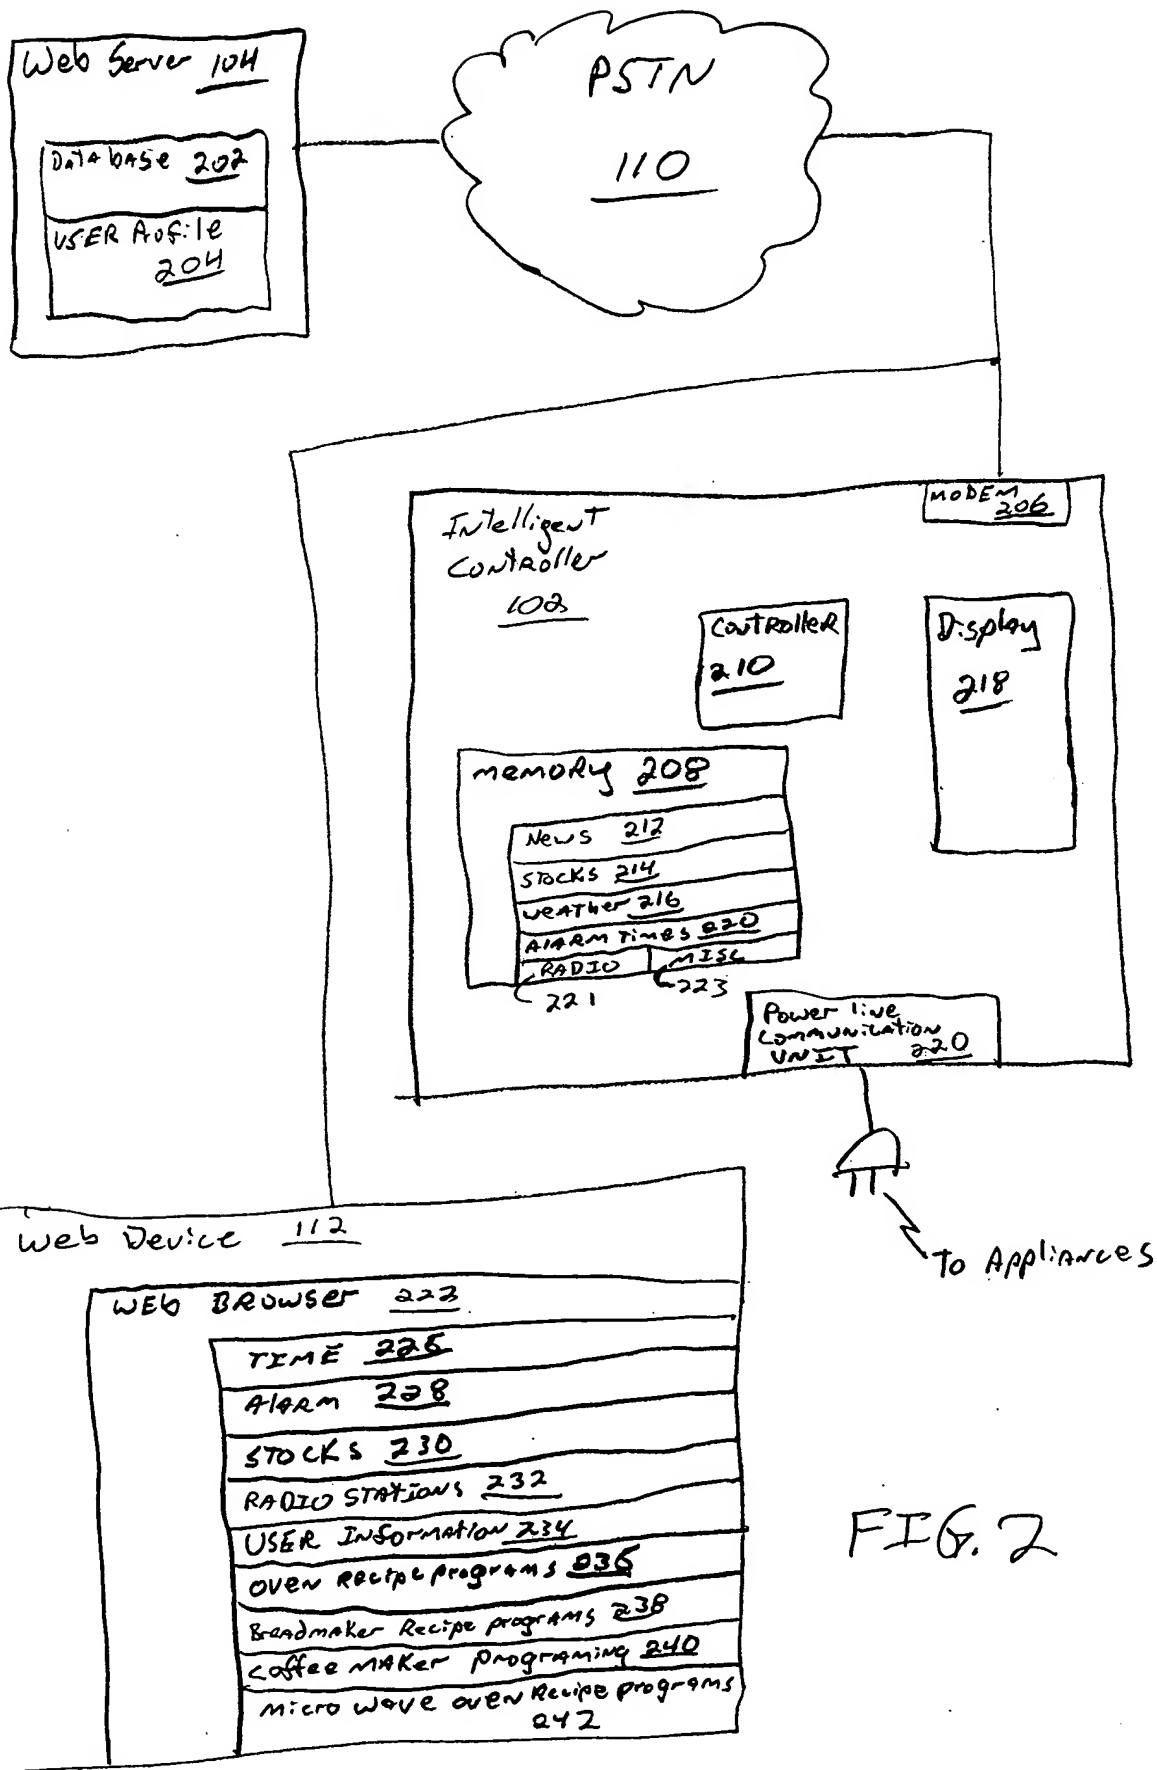 Web Server 104
Database 202
USER Profile
204
PSTN
110
MODEM
206
Intelligent
Controller
102
Controller
210
Display
218
Memory 208
News 212
Stocks 214
Weather 216
Alarm Times 220
RADIO
MISC
221
223
Power line
communication
UNIT 220
To Appliances
Web Device 112
WEB BROWSER 222
TIME 226
Alarm 228
STOCKS 230
RADIO STATIONS 232
USER Information 234
Oven Recipe programs 236
Breadmaker Recipe programs 238
Coffee Maker Programing 240
Micro wave oven Recipe programs
242
FIG. 2